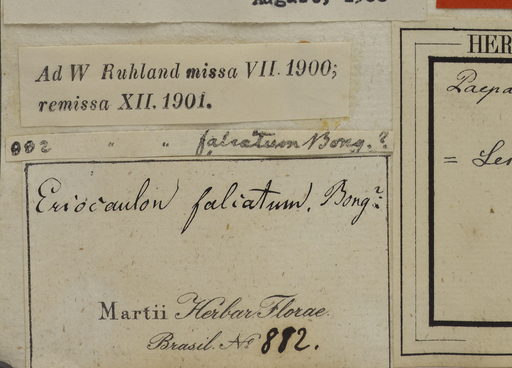 August, 19
Ad W Ruhland missa VII. 1900;
remissa XII. 1901.
882 " " faliatum Bong.?
Eriocaulon faliatum. Bong?
Martii Herbar. Florae
Brasil. No 882.
HER
Paepa
= Le